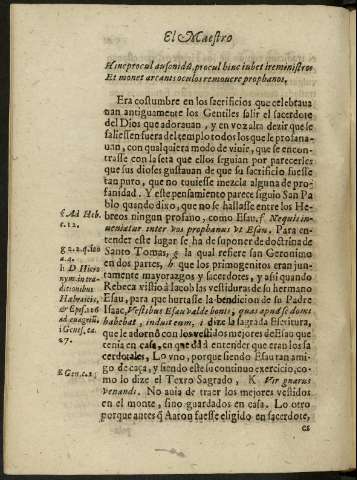 El Maestro
Hinc procul ausonidũ, procul hinc iubet ire ministros
Et monet arcanis oculos remouere prophanos.
Era costumbre en los sacrificios que celebraua
uan antiguamente los Gentiles salir el sacerdote
del Dios que adorauan, y en voz alta dezir que se
saliessen fuera del templo todos los que le profana-
uan, con qualquiera modo de viuir, que se encon-
trasse con la seta que ellos seguian por parecerles
que sus dioses gustauan de que su sacrificio fuesse
tan puro, que no tuuiesse mezcla alguna de pro-
fanidad. Y este pensamiento parece siguio San Pa
blo quando dixo, que no se hallasse entre los He-
breos ningun profano, como Esau. f. Nequis in-
f. Ad Heb.
c. 12.
ueniatur inter vos prophanus vt Esau. Para en-
tender este lugar se ha de suponer de doctrina de
Santo Tomas, g la qual refiere san Geronimo
g 2. 2. q.
a. 4.
en dos partes, h que los primogenitos eran jun-
h D. Hiero
nym. in tra-
ditionibus
Hebraicis,
& Epist. 126
ad euagriũ.
tamente mayorazgos y sacerdotes, y assi quando
Rebeca vistio à Iacob las vestiduras de su hermano
Esau, para que hurtasse la bendicion de su Padre
Isaac, Vestibus Esau valde bonis, quas apud se domi
habebat, induit eum, i dize la sagrada Escritura,
i Genes. ca.
27.
que le adornò con los vestidos mejores de Esau que
tenia en casa, en que dà à entender que eran los sa
cerdotales, Lo vno, porque siendo Esau tan ami-
go de caça, y siendo este su continuo exercicio, co-
mo lo dize el Texto Sagrado, K Vir gnarus
K Gen. c. 25
venandi. No auia de traer los mejores vestidos
en el monte, sino guardados en casa. Lo otro
porque antes q̃ Aaron fuesse eligido en sacerdote,
es